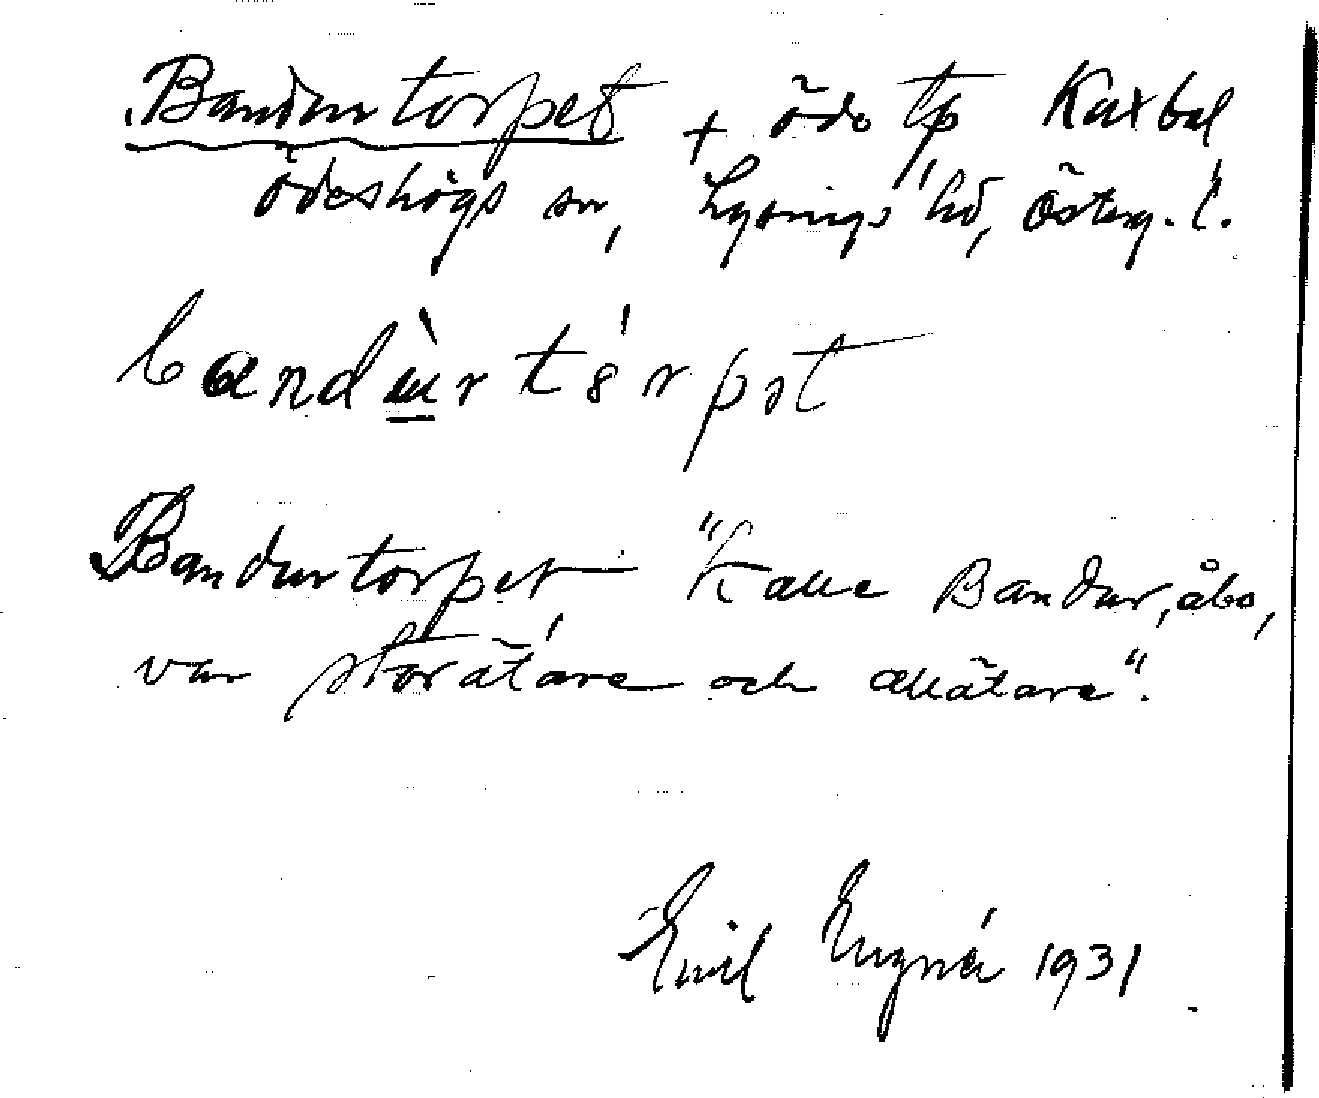 Bandurtorpet + öde tp Kaxbol
Ödeshögs sn, Lysings hd, Österg. l.
bandùrtórpət
Bandurtorpet, "Kalle Bandur, åbo,
var storätare och allätare".
Emil 1931